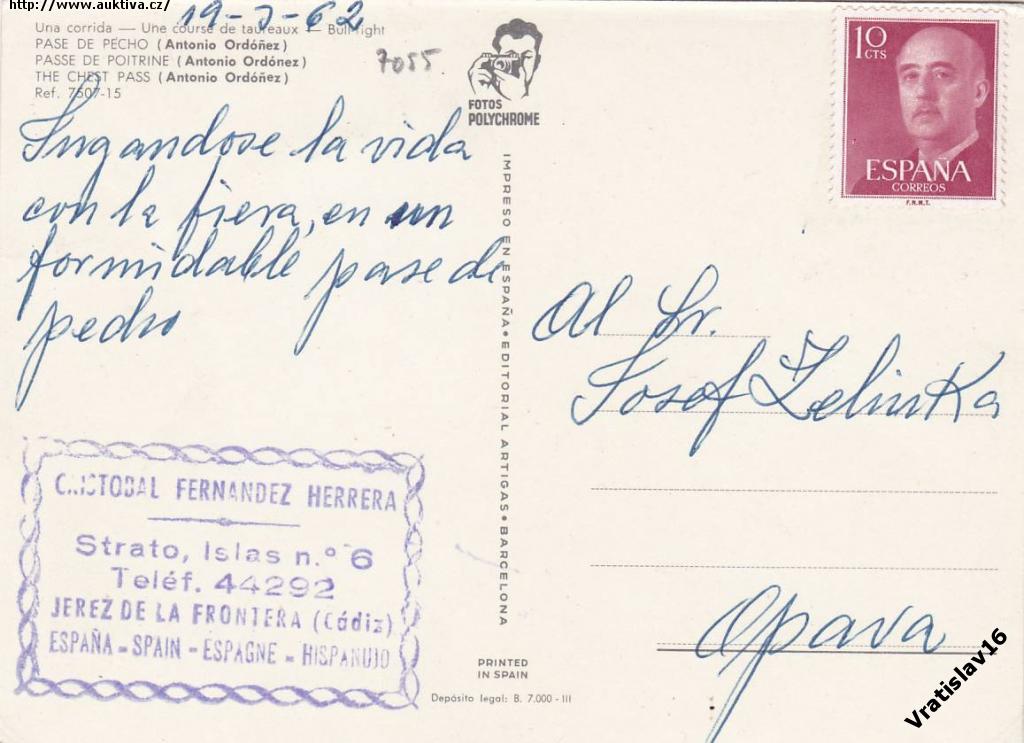 http://www.auktiva.cz/
19-3-62
Una corrida — Une course de taureaux — Bull fight
PASE DE PECHO (Antonio Ordóñez)
PASSE DE POITRINE (Antonio Ordónez)
THE CHEST PASS (Antonio Ordóñez)
Ref. 7507-15
7055
FOTOS
POLYCHROME
10
CTS
ESPAÑA
CORREOS
F.N.M.T.
Jugandose la vida
con la fiera, en un
formidable pase de
pecho
IMPRESO EN ESPAÑA • EDITORIAL ARTIGAS • BARCELONA
Al Sr.
Josef Zelinka
Opava
CRISTOBAL FERNANDEZ HERRERA
Strato, Islas n.º 6
Teléf. 44292
JEREZ DE LA FRONTERA (Cádiz)
ESPAÑA - SPAIN - ESPAGNE - HISPANUJO
PRINTED
IN SPAIN
Depósito legal: B. 7.000 - III
Vratislav16